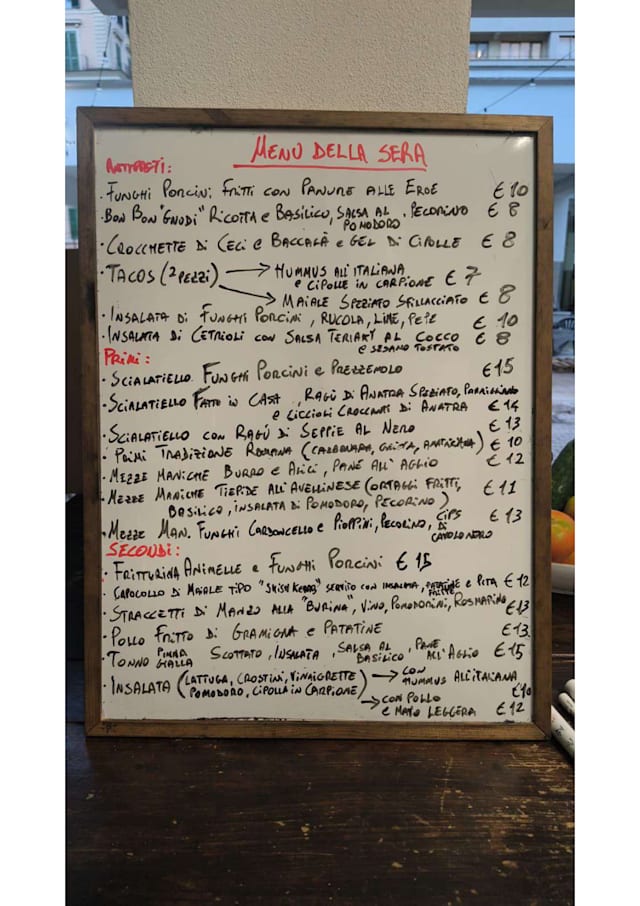 MENÙ DELLA SERA
ANTIPASTI:
· FUNGHI PORCINI FRITTI CON PANURE ALLE ERBE € 10
· BON BON "GNUDI" RICOTTA e BASILICO, SALSA AL POMODORO, PECORINO € 8
· CROCCHETTE DI CECI e BACCALÀ e GEL DI CIPOLLE € 8
· TACOS (2 PEZZI) → HUMMUS ALL'ITALIANA e CIPOLLE IN CARPIONE € 7
→ MAIALE SPEZIATO SFILLACCIATO € 8
· INSALATA DI FUNGHI PORCINI, RUCOLA, LIME, PEPE € 10
· INSALATA DI CETRIOLI CON SALSA TERIAKY AL COCCO e SESAMO TOSTATO € 8
PRIMI:
· SCIALATIELLO FUNGHI PORCINI e PREZZEMOLO € 15
· SCIALATIELLO FATTO IN CASA, RAGÙ DI ANATRA SPEZIATO, PARMIGIANO
e CICCIOLI CROCCANTI DI ANATRA € 14
· SCIALATIELLO CON RAGÙ DI SEPPIE AL NERO € 13
· PRIMI TRADIZIONE ROMANA (CARBONARA, GRICIA, AMATRICIANA) € 10
· MEZZE MANICHE BURRO e ALICI, PANE ALL'AGLIO € 12
· MEZZE MANICHE TIEPIDE ALL'AVELLINESE (ORTAGGI FRITTI,
BASILICO, INSALATA DI POMODORO, PECORINO) € 11
· MEZZE MAN. FUNGHI CARDONCELLO e PIOPPINI, PECORINO, CIPS DI CAVOLO NERO € 13
SECONDI:
· FRITTURINA ANIMELLE e FUNGHI PORCINI € 15
· CAPOCOLLO DI MAIALE TIPO "SHISH KEBAB" SERVITO CON INSALATA, PATATINE FRITTE e PITA € 12
· STRACCETTI DI MANZO ALLA "BURINA", VINO, POMODORINI, ROSMARINO € 13
· POLLO FRITTO DI GRAMIGNA e PATATINE € 13
· TONNO PINNA GIALLA SCOTTATO, INSALATA, SALSA AL BASILICO, PANE ALL'AGLIO € 15
· INSALATA (LATTUGA, CROSTINI, VINAIGRETTE → CON HUMMUS ALL'ITALIANA
POMODORO, CIPOLLA IN CARPIONE) € 10
→ CON POLLO e MAYO LEGGERA € 12